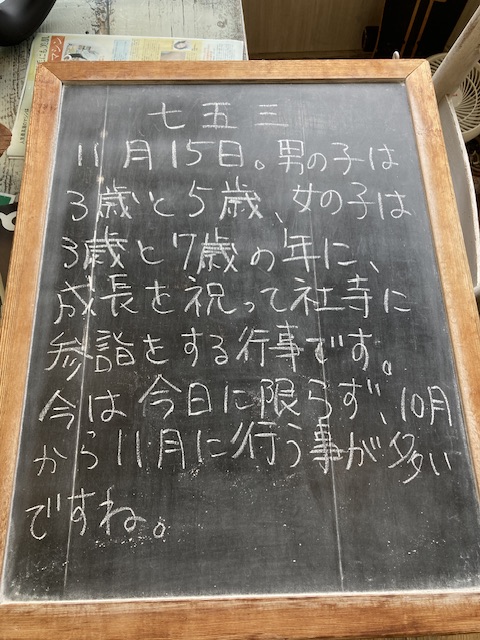 七五三
11月15日。男の子は
3歳と5歳、女の子は
3歳と7歳の年に、
成長を祝って社寺に
参詣をする行事です。
今は今日に限らず、10月
から11月に行う事が多い
ですね。
マシン